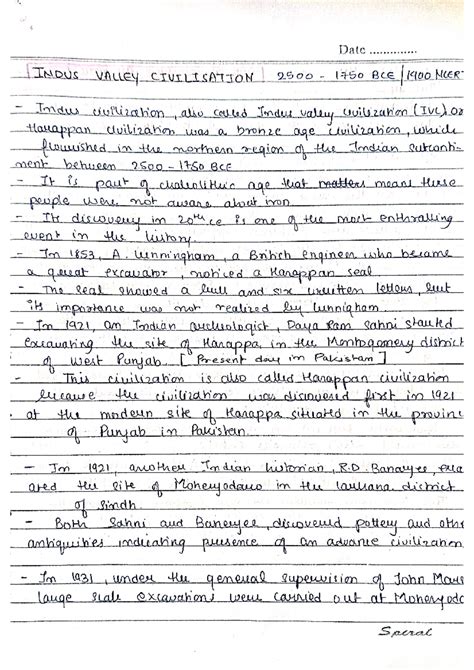 Date ..............
INDUS VALLEY CIVILISATION 2500 - 1750 BCE /1900 NCERT
- Indus civilization, also called Indus valley civilization (IVC) or
Harappan civilization was a bronze age civilization, which
flourished in the northern region of the Indian subconti-
nment between 2500 - 1750 BCE
- It is part of chalcolithic age that matters means these
people were not aware about iron
- Its discovery in 20th.ce is one of the most enthralling
event in the history.
- In 1853, A. Cunningham, a British engineer who became
a great excavator, noticed a Harappan seal.
- The seal showed a bull and six written letters, but
its importance was not realized by Cunnigham.
- In 1921, an Indian archeologist, Daya Ram Sahni started
excavating the site of Harappa in the Montgomery district
of West Punjab [Present day in Pakistan]
- This civilization is also called Harappan civilization
because the civilization was discovered first in 1921
at the modern site of Harappa situated in the provinc
of Punjab in Pakistan.
- In 1921, another Indian historian, R.D. Banarjee, exca
ated the site of Mohenjodaro in the larkana district
of Sindh
- Both Sahni and Banerjee, discovered pottery and othe
antiquities indicating presence of an advance civilization
- In 1931, under the general supervision of John Mars
large scale excavations were carried out at Mohenjoda
Spiral